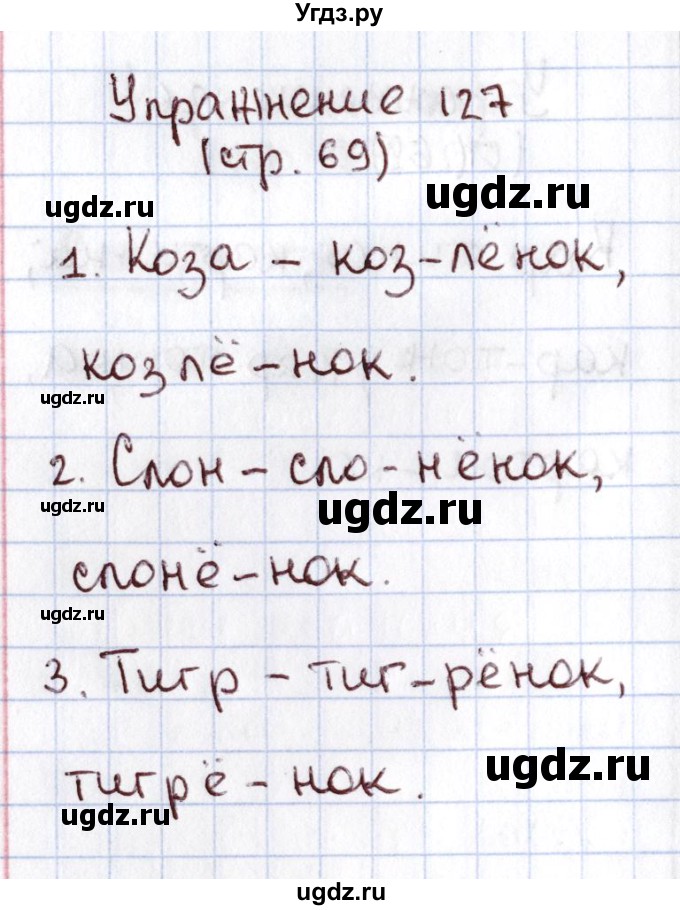 Угдз.ру
Упражнение 127
(стр. 69)
ugdz.ru
ugdz.ru
1. Коза - коз-лёнок,
козлё-нок.
ugdz.ru
2. Слон - сло-нёнок,
ugdz.ru
ugdz.ru
слонё-нок.
ugdz.ru
3. Тигр - тиг-рёнок,
ugdz.ru
тигрё-нок.
ugdz.ru
ugdz.ru